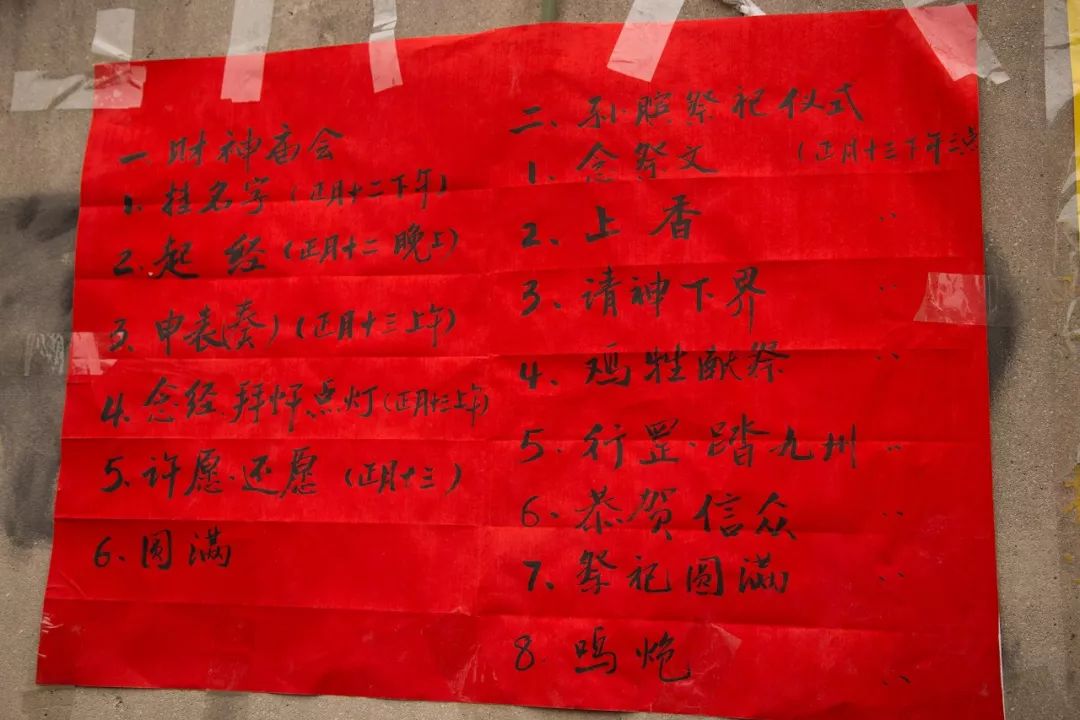 一 财神庙会
1、挂名字(正月十二下午)
2、起经(正月十二晚上)
3、申表(奏)(正月十三上午)
4、念经拜忏点灯(正月十三上午)
5、许愿·还愿(正月十三)
6、圆满
二、孙膑祭祀仪式
1、念祭文 (正月十三下午三点
2、上香 〃
3、请神下界 〃
4、鸡牲献祭 〃
5、行罡·踏九州 〃
6、恭贺信众 〃
7、祭祀圆满 〃
8 鸣炮 〃